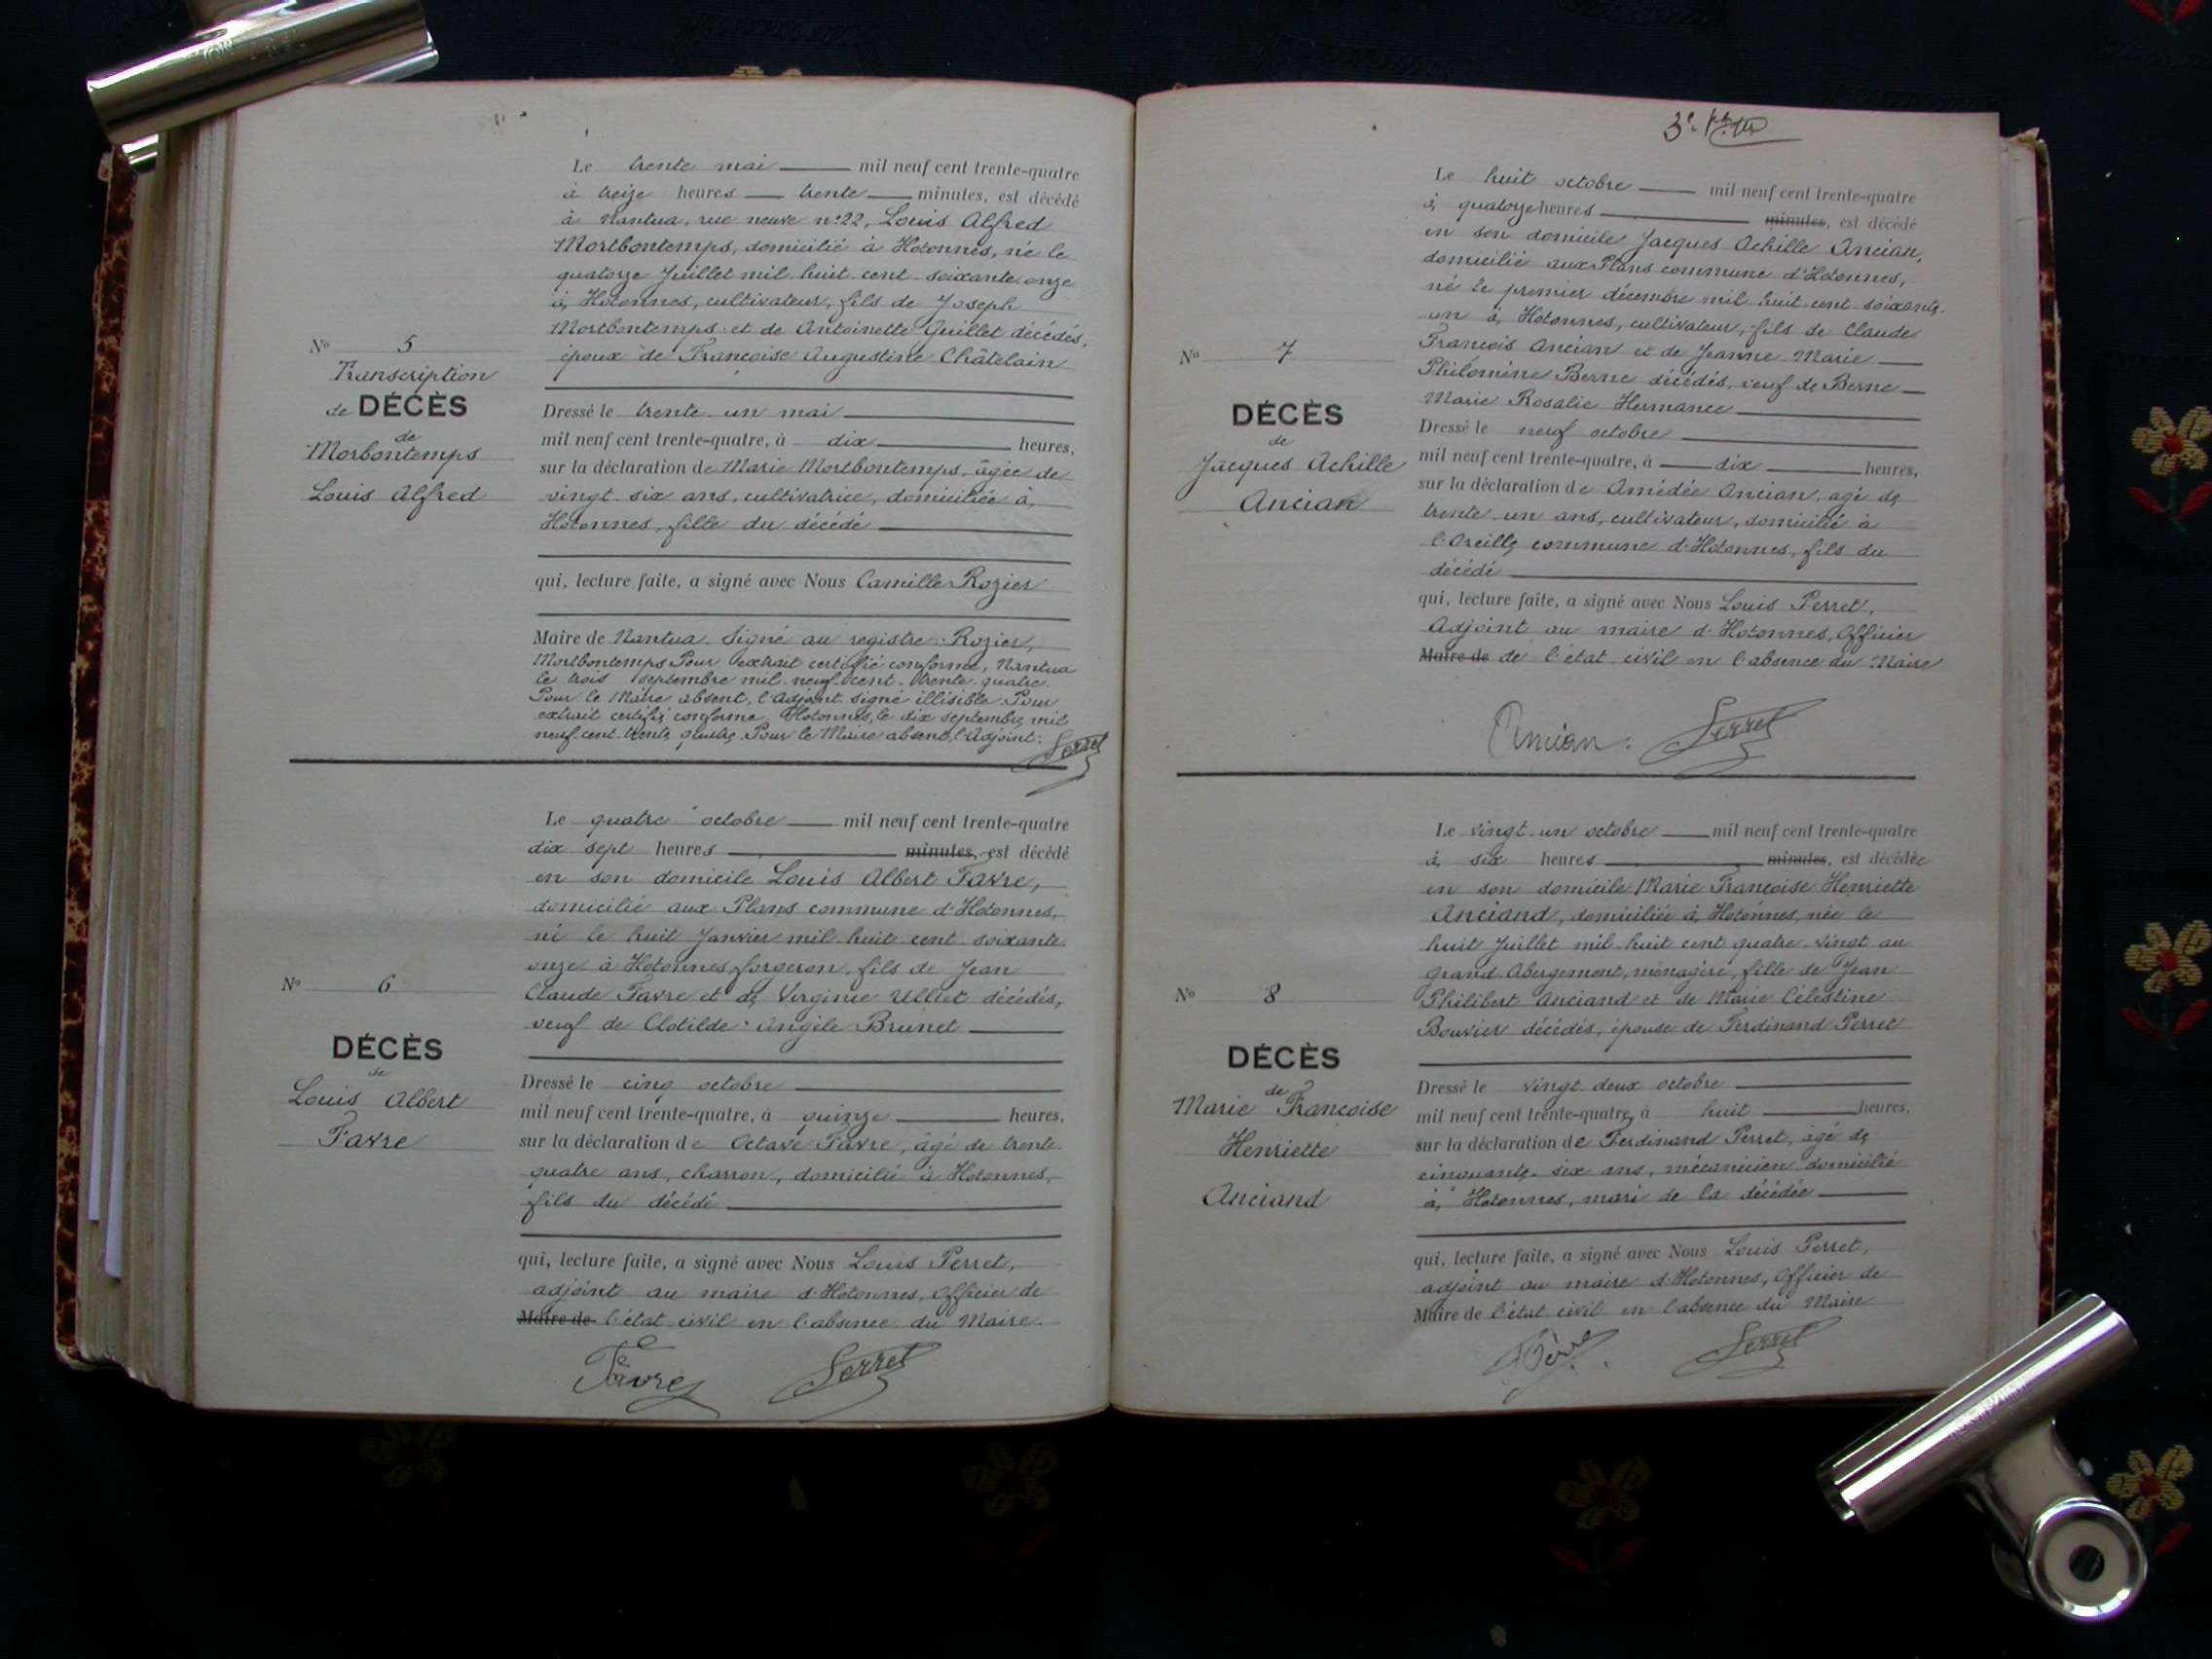 Le trente mai mil neuf cent trente-quatre
à treize heures trente minutes, est décédé
à Nantua, rue neuve n°22, Louis Alfred
Mortbontemps, domicilié à Hotonnes, né le
quatorze Juillet mil huit cent soixante onze
à Hotonnes, cultivateur, fils de Joseph
Mortbontemps et de Antoinette Guillet décédés,
époux de Françoise Augustine Châtelain
N° 5
Transcription
de DÉCÈS
de
Morbontemps
Louis Alfred
Dressé le trente un mai
mil neuf cent trente-quatre, à dix heures,
sur la déclaration de Marie Mortbontemps, âgée de
vingt six ans, cultivatrice, domiciliée à
Hotonnes, fille du décédé
qui, lecture faite, a signé avec Nous Camille Rozier
Maire de Nantua. Signé au registre: Rozier,
Mortbontemps Pour extrait certifié conforme, Nantua
le trois septembre mil neuf cent trente quatre.
Pour le Maire absent, l'Adjoint signé illisible. Pour
extrait certifié conforme. Hotonnes, le dix septembre mil
neuf cent trente quatre Pour le Maire absent, l'Adjoint:
Perret
Le quatre octobre mil neuf cent trente-quatre
dix sept heures minutes, est décédé
en son domicile Louis Albert Favre,
domicilié aux Plans commune d'Hotonnes,
né le huit Janvier mil huit cent soixante
onze à Hotonnes, forgeron, fils de Jean
Claude Favre et de Virginie Ulliet décédés,
veuf de Clotilde Angèle Brunet
N° 6
DÉCÈS
de
Louis Albert
Favre
Dressé le cinq octobre
mil neuf cent trente-quatre, à quinze heures,
sur la déclaration de Octave Favre, âgé de trente
quatre ans, charron, domicilié à Hotonnes,
fils du décédé
qui, lecture faite, a signé avec Nous Louis Perret,
adjoint au maire d'Hotonnes, Officier de
Maire de l'état civil en l'absence du Maire.
Favre Perret
Le huit octobre mil neuf cent trente-quatre
à quatorze heures minutes, est décédé
en son domicile Jacques Achille Ancian,
domicilié aux Plans commune d'Hotonnes,
né le premier décembre mil huit cent soixante
un à Hotonnes, cultivateur, fils de Claude
François Ancian et de Jeanne Marie
Philomène Berne décédés, veuf de Berne
Marie Rosalie Hermance
N° 7
DÉCÈS
de
Jacques Achille
Ancian
Dressé le neuf octobre
mil neuf cent trente-quatre, à dix heures,
sur la déclaration de Amédée Ancian, agé de
trente un ans, cultivateur, domicilié à
l'Oreille commune d'Hotonnes, fils du
décédé
qui, lecture faite, a signé avec Nous Louis Perret,
Adjoint au maire d'Hotonnes, Officier
Maire de de l'état civil en l'absence du Maire
Ancian. Perret
Le vingt un octobre mil neuf cent trente-quatre
à six heures minutes, est décédée
en son domicile Marie Françoise Henriette
Anciand, domiciliée à Hotonnes, née le
huit Juillet mil huit cent quatre-vingt au
grand Abergement, ménagère, fille de Jean
Philibert Anciand et de Marie Célestine
Bouvier décédés, épouse de Ferdinand Perret
N° 8
DÉCÈS
de
Marie Françoise
Henriette
Anciand
Dressé le vingt deux octobre
mil neuf cent trente-quatre, à huit heures,
sur la déclaration de Ferdinand Perret, âgé de
cinquante-six ans, mécanicien domicilié
à Hotonnes, mari de la décédée
qui, lecture faite, a signé avec Nous Louis Perret,
adjoint au maire d'Hotonnes, Officier de
Maire de l'état civil en l'absence du Maire
Perret